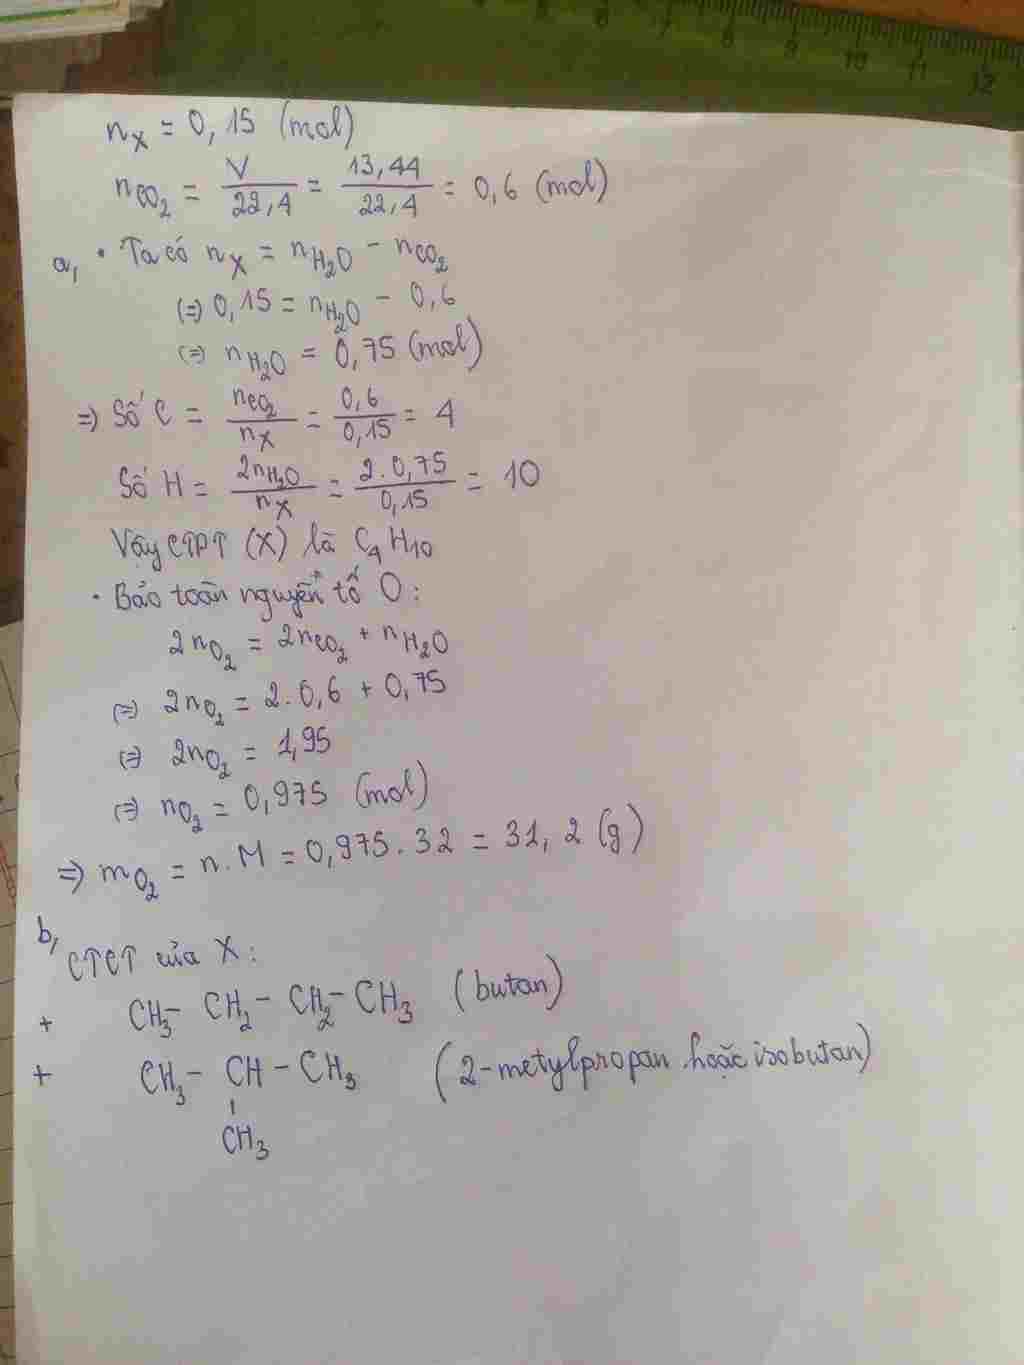 6 7 8 9 10 11 12
n_X = 0,15 (mol)
n_CO₂ = V/22,4 = 13,44/22,4 = 0,6 (mol)
a, • Ta có n_X = n_H₂O − n_CO₂
(=) 0,15 = n_H₂O − 0,6
(=) n_H₂O = 0,75 (mol)
=) Số C = n_CO₂/n_X = 0,6/0,15 = 4
Số H = 2n_H₂O/n_X = 2.0,75/0,15 = 10
Vậy CTPT (X) là C₄H₁₀
• Bảo toàn nguyên tố O:
2n_O₂ = 2n_CO₂ + n_H₂O
(=) 2n_O₂ = 2.0,6 + 0,75
(=) 2n_O₂ = 1,95
(=) n_O₂ = 0,975 (mol)
=) m_O₂ = n.M = 0,975.32 = 31,2 (g)
b, CTCT của X:
+ CH₃− CH₂− CH₂− CH₃ (butan)
+ CH₃− CH − CH₃ (2-metylpropan hoặc isobutan)
CH₃